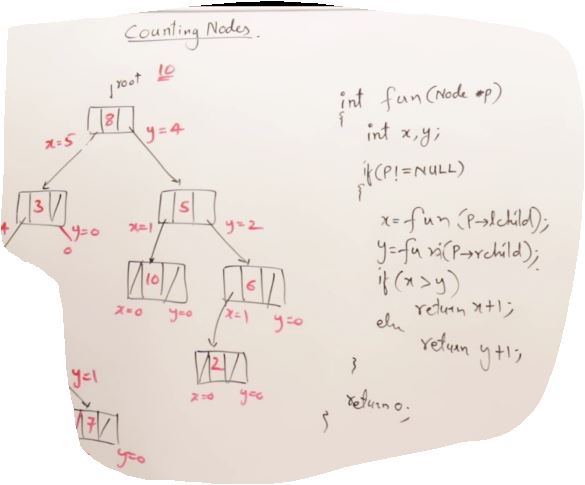 Counting Nodes.
root 10
8
x=5 y=4
3 5
4 y=0 x=1 y=2
0
10 6
x=0 y=0 x=1 y=0
2
x=0 y=0
y=1
7
y=0
int fun(Node *p)
{
int x,y;
if(P!=NULL)
{
x=fun(P→lchild);
y=fun(P→rchild);
if(x>y)
return x+1;
else
return y+1;
}
return 0;
}